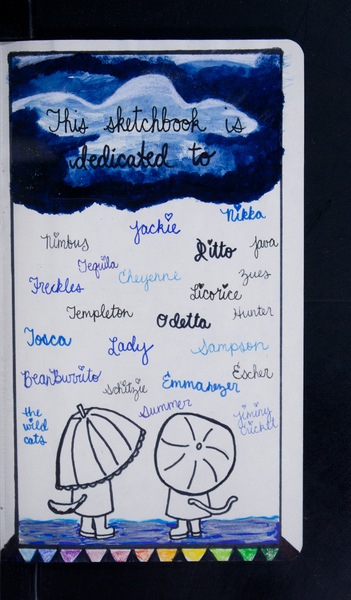 This sketchbook is
dedicated to
Nikka
Jackie
Nimbus
Ditto
Java
Tequila
Freckles
Cheyenne
Zues
Licorice
Templeton
Odetta
Hunter
Tosca
Lady
Sampson
BeanBurrito
Schitzie
Emmanozer
Escher
Summer
the
wild
cats
jiminy
cricket